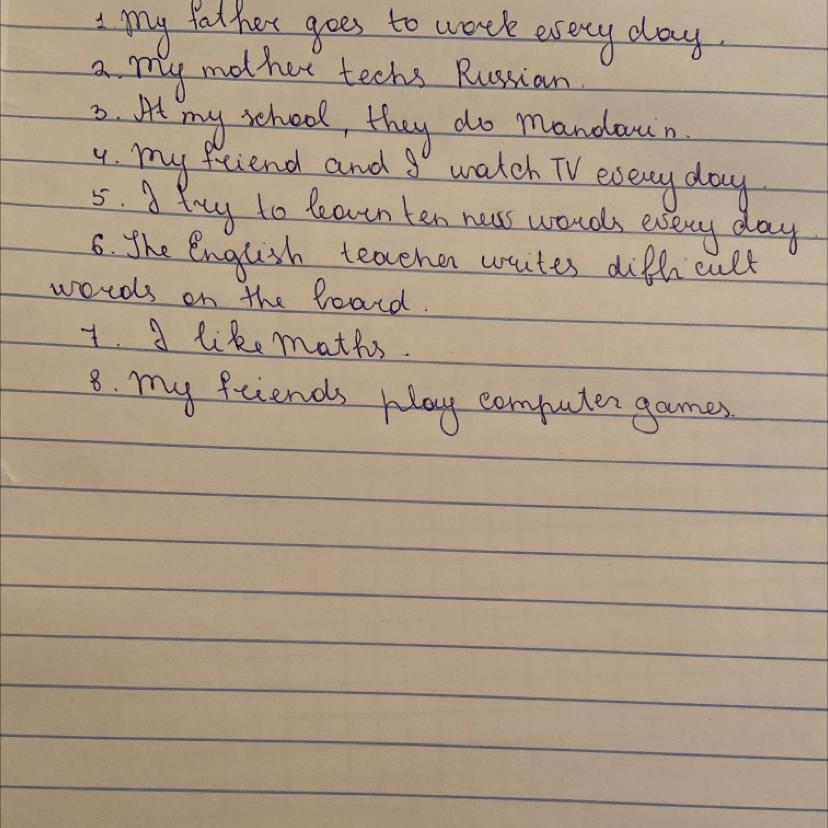 1. My father goes to work every day.
2. My mother techs Russian.
3. At my school, they do Mandarin.
4. My friend and I watch TV every day.
5. I try to learn ten new words every day.
6. The English teacher writes difficult
words on the board.
7. I like maths.
8. My friends play computer games.